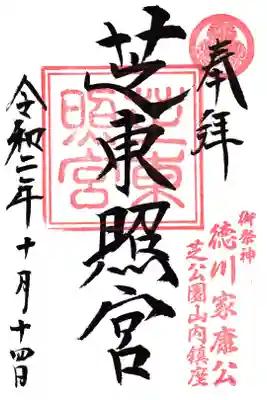 奉拝
御祭神
徳川家康公
芝公園山内鎮座
芝東照宮
芝東照宮
令和二年十月十四日